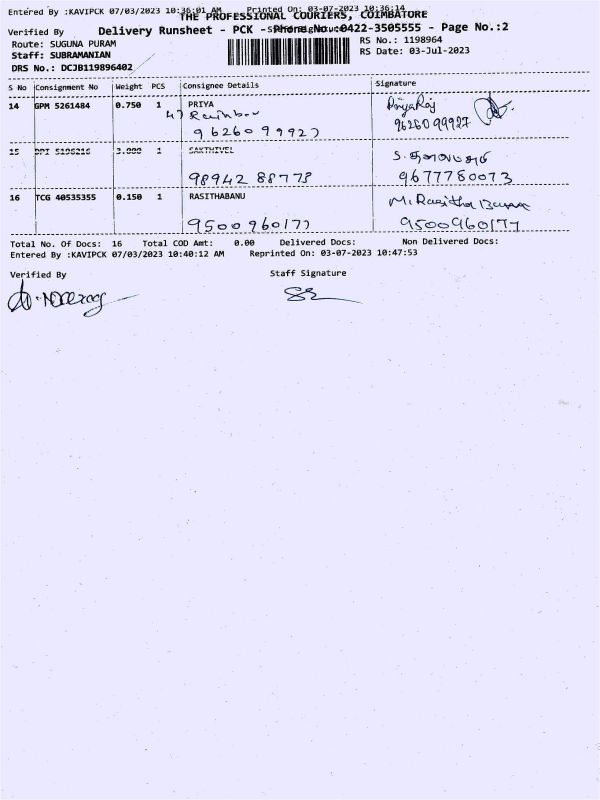 Entered By :KAVIPCK 07/03/2023 10:36:01 AM Printed On: 03-07-2023 10:36:14
THE PROFESSIONAL COURIERS, COIMBATORE
Verified By
Delivery Runsheet - PCK - Phone No.:0422-3505555 - Page No.:2
Route: SUGUNA PURAM
RS No.: 1198964
Staff: SUBRAMANIAN
RS Date: 03-Jul-2023
DRS No.: DCJB119896402
S No Consignment No Weight PCS Consignee Details Signature
14 GPM 5261484 0.750 1 PRIYA PriyaRaj
47 Rainbow
96260 99927 96260 99927
15 1 SAKTHIVEL
98942 88778 9677780073
16 TCG 40535355 0.150 1 RASITHABANU M. Rasitha
9500960177 9500960177
Total No. Of Docs: 16 Total COD Amt: 0.00 Delivered Docs: Non Delivered Docs:
Entered By :KAVIPCK 07/03/2023 10:40:12 AM Reprinted On: 03-07-2023 10:47:53
Verified By Staff Signature